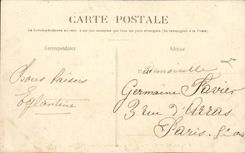 CARTE POSTALE
Correspondance
Adresse
Bons baisers
Eglantine
Demoiselle
Germaine Favier
3 rue d'Arras
Paris